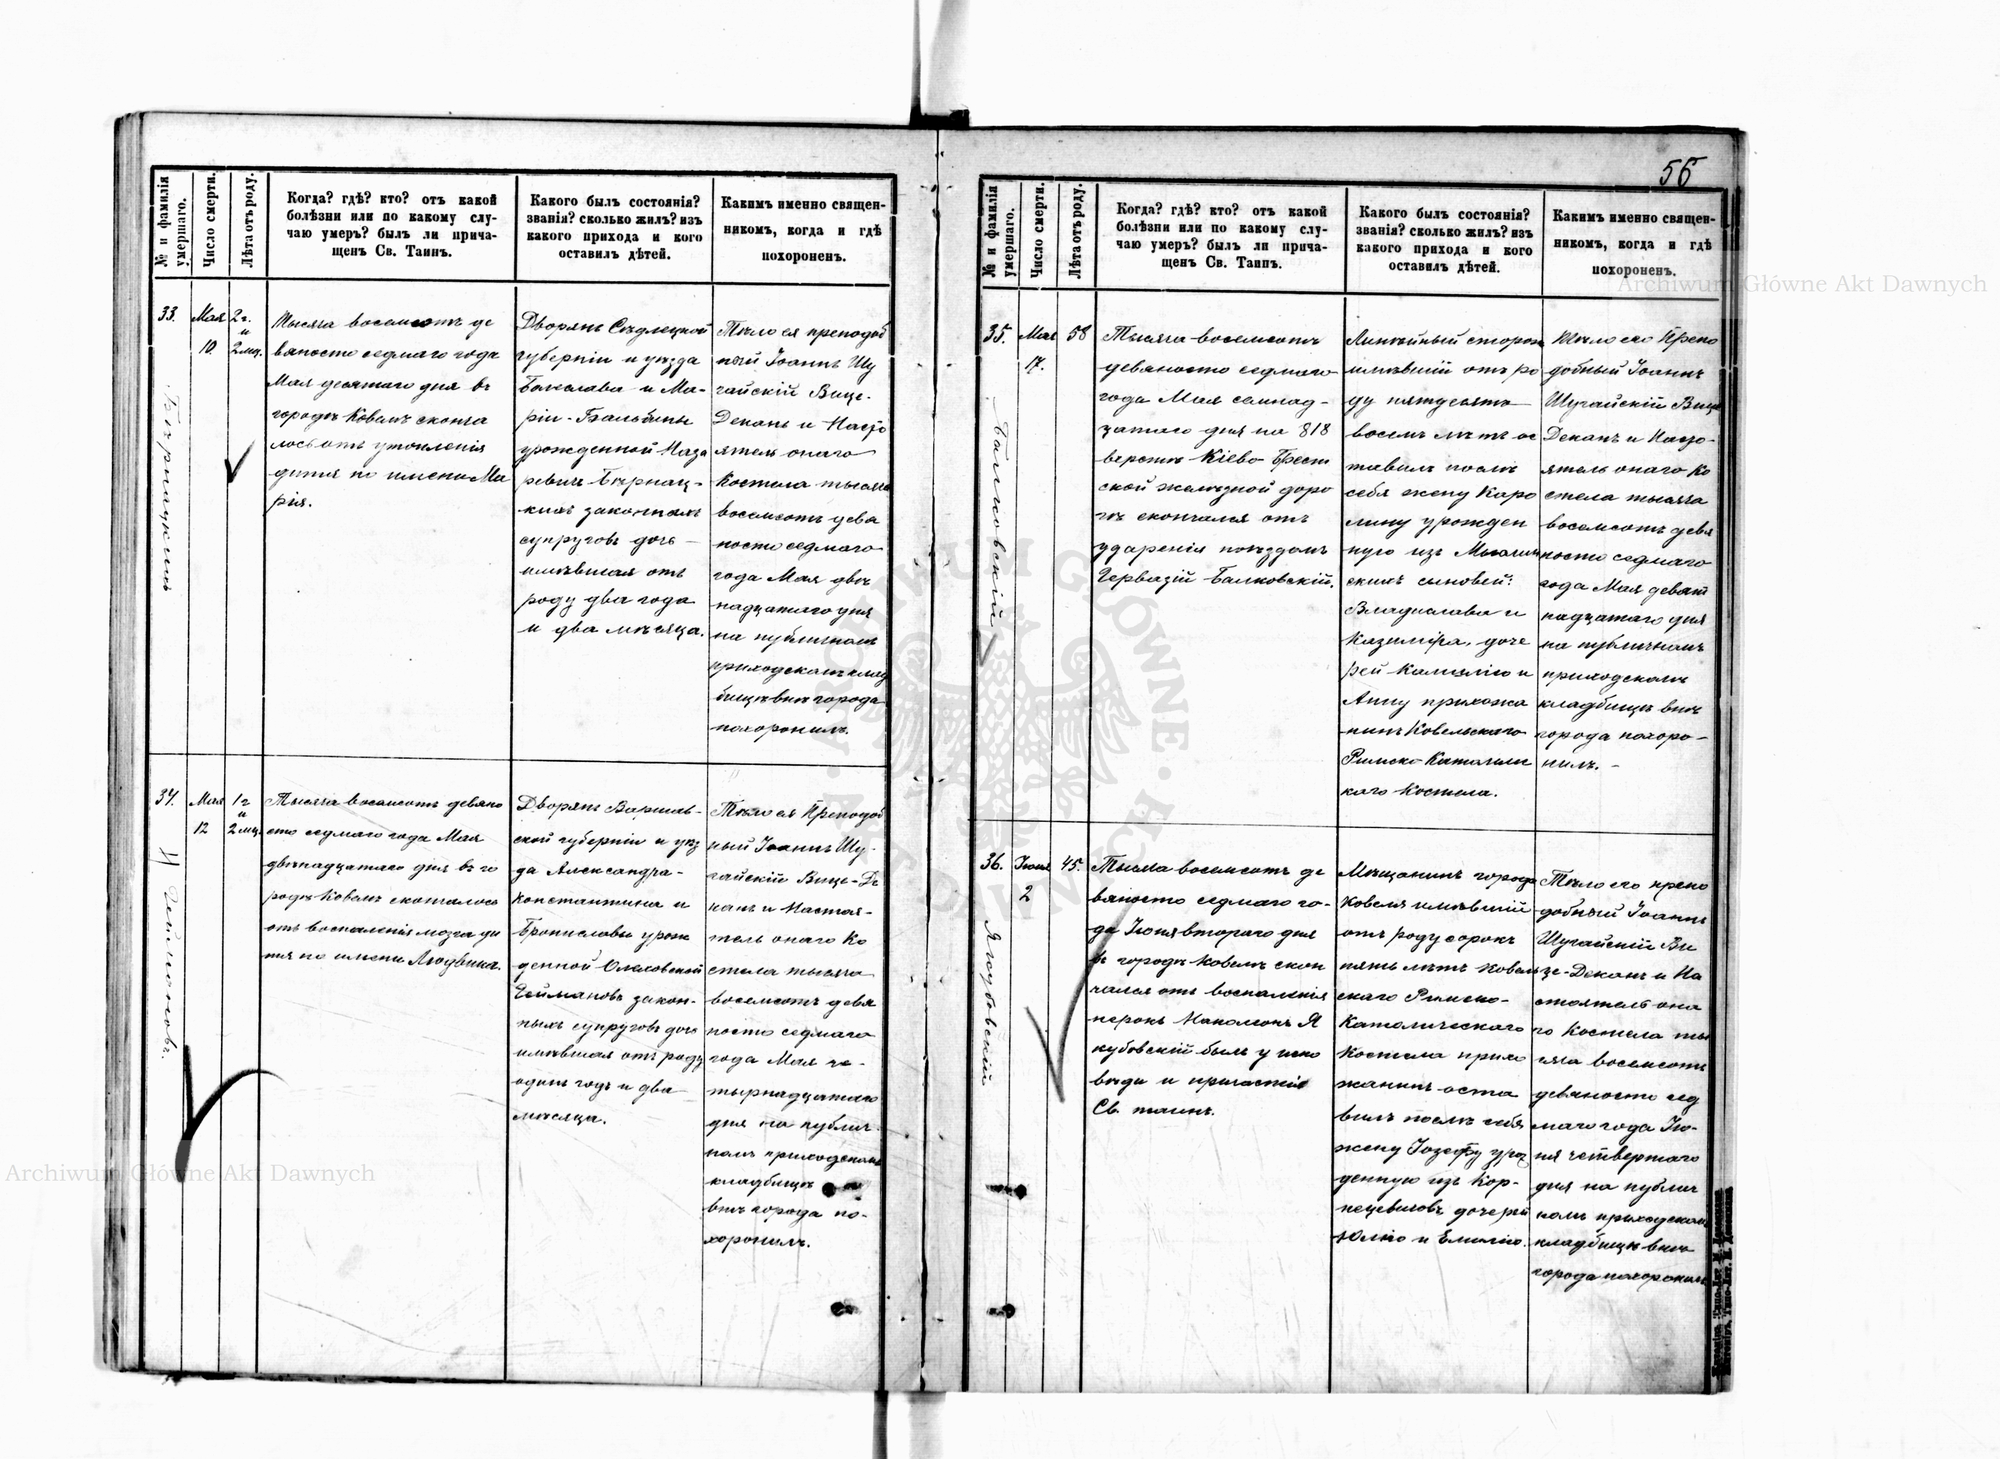 № и фамилія
умершаго.
Число смерти.
Лѣта отъ роду.
Когда? гдѣ? кто? отъ какой
болѣзни или по какому слу-
чаю умеръ? былъ ли прича-
щенъ Св. Таинъ.
Какого былъ состоянія?
званія? сколько жилъ? изъ
какого прихода и кого
оставилъ дѣтей.
Какимъ именно священ-
никомъ, когда и гдѣ
похороненъ.
33.
Мая
10.
2 г.
и
2 мц.
Тысяча восемсотъ де
вяносто седмаго года
Мая десятаго дня въ
городѣ Ковелѣ сконча
лось отъ утопленія
дитя по имени Ма
рія.
Дворянъ Сѣдлецкой
губерніи и уѣзда
Болеслава и Ма-
ріи-Бальбины
урожденной Наза
ревичъ Бѣрнац-
кихъ законныхъ
супруговъ дочь
имѣвшая отъ
роду два года
и два мѣсяца.
Тѣло ея преподоб
ный Іоаннъ Шу
гайскій Вице-
Деканъ и Насто
ятель онаго
Костела тысяча
восемсотъ девя
носто седмаго
года Мая двѣ
надцатаго дня
на публичномъ
приходскомъ клад
бищѣ внѣ города
похоронилъ.
34.
Мая
12
1 г
и
2 мц.
Тысяча восемсотъ девяно
сто седмаго года Мая
двѣнадцатаго дня въ го
родѣ Ковелѣ скончалось
отъ воспаленія мозга ди
тя по имени Людвика.
Дворянъ Варшав-
ской губерніи и уѣз
да Александра-
Константина и
Брониславы урож
денной
законъ-
ныхъ супруговъ дочь
имѣвшая отъ роду
одинъ годъ и два
мѣсяца.
Тѣло ея Преподоб
ный Іоаннъ Шу-
гайскій Вице-Де
канъ и Настоя-
тель онаго Ко
стела тысяча
восемсотъ девя
носто седмаго
года Мая че-
тырнадцатаго
дня на публич-
номъ приходскомъ
кладбищѣ
внѣ города по-
хоронилъ.
56
№ и фамилія
умершаго.
Число смерти.
Лѣта отъ роду.
Когда? гдѣ? кто? отъ какой
болѣзни или по какому слу-
чаю умеръ? былъ ли прича-
щенъ Св. Таинъ.
Какого былъ состоянія?
званія? сколько жилъ? изъ
какого прихода и кого
оставилъ дѣтей.
Какимъ именно священ-
никомъ, когда и гдѣ
похороненъ.
35.
Мая
17.
58
Балковскій
Тысяча восемсотъ
девяносто седмаго
года Мая семнад-
цатаго дня на 818
верстѣ Кіево Брест
ской желѣзной доро
гѣ скончался отъ
ударенія поѣздомъ
Гервазій Балковскій.
Линѣйный сторож
имѣвшій отъ ро
ду пятдесятъ
восемь лѣтъ ос
тавилъ послѣ
себя жену Каро
лину урожден
ную изъ
скихъ сыновей:
Владислава и
Казиміра, доче
рей Камилію и
Анну прихожа
нинъ Ковельскаго
Римско Католиче
каго Костела.
Тѣло его Препо
добный Іоаннъ
Шугайскій Вице
Деканъ и Насто-
ятель онаго Ко
стела тысяча
восемсотъ девя
носто седмаго
года Мая девят
надцатаго дня
на публичномъ
приходскомъ
кладбищѣ внѣ
города похоро-
нилъ.
36.
Іюня
2
45.
Якубовскій
Тысяча восемсотъ де
вяносто седмаго го-
да Іюня втораго дня
въ городѣ Ковелѣ скон
чался отъ воспаленія
Наполеонъ Я
кубовскій былъ у испо
вѣди и причастія
Св. таинъ.
Мѣщанинъ города
Ковеля имѣвшій
отъ роду сорокъ
пять лѣтъ Ковель
скаго Римско-
Католическаго
Костела прихо
жанинъ оста
вилъ послѣ себя
жену Іозефу урож
денную изъ Кор-
дочерей
Юлію и Емилію.
Тѣло его препо
добный Іоаннъ
Шугайскій Ви
це-Деканъ и На
стоятель она
го Костела ты
сяча восемсотъ
девяносто сед
маго года Ію-
ня четвертаго
дня на публич
номъ приходскомъ
кладбищѣ внѣ
города похоронилъ
Archiwum Główne Akt Dawnych
Archiwum Główne Akt Dawnych